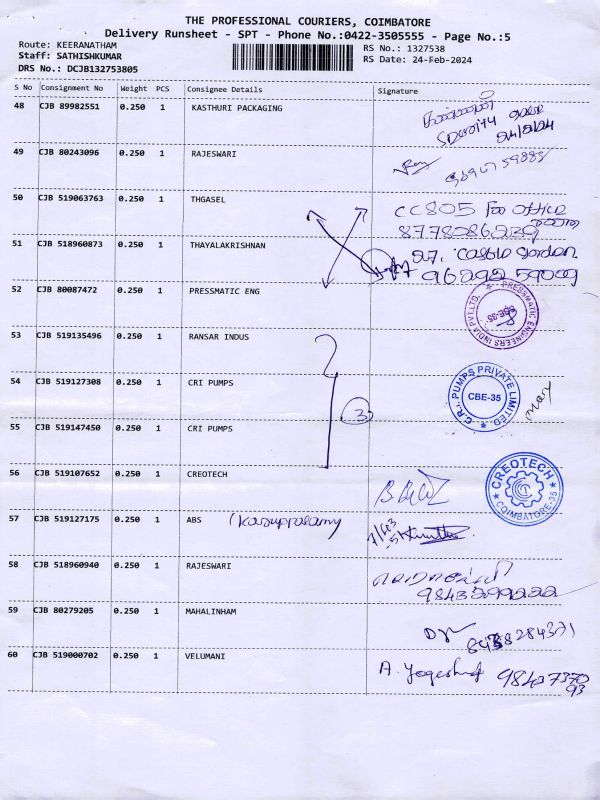 THE PROFESSIONAL COURIERS, COIMBATORE
Delivery Runsheet - SPT - Phone No.:0422-3505555 - Page No.:5
Route: KEERANATHAM
RS No.: 1327538
Staff: SATHISHKUMAR
RS Date: 24-Feb-2024
DRS No.: DCJB132753805
S No Consignment No Weight PCS Consignee Details Signature
48 CJB 89982551 0.250 1 KASTHURI PACKAGING
Security
24/2/24
49 CJB 80243096 0.250 1 RAJESWARI
50 CJB 519063763 0.250 1 THGASEL
CC805 Foo office
8778286239
51 CJB 518960873 0.250 1 THAYALAKRISHNAN
96292 59009
52 CJB 80087472 0.250 1 PRESSMATIC ENG
PRESSMATIC ENGINEERS INDIA PVT.LTD. CBE-35.
53 CJB 519135496 0.250 1 RANSAR INDUS
54 CJB 519127308 0.250 1 CRI PUMPS
C.R.I. PUMPS PRIVATE LIMITED. CBE-35
3
55 CJB 519147450 0.250 1 CRI PUMPS
56 CJB 519107652 0.250 1 CREOTECH
CREOTECH COIMBATORE-35
57 CJB 519127175 0.250 1 ABS (Karuppasamy
58 CJB 518960940 0.250 1 RAJESWARI
9843299222
59 CJB 80279205 0.250 1 MAHALINHAM
8438284371
60 CJB 519000702 0.250 1 VELUMANI
A. Yogesh 98437370
93